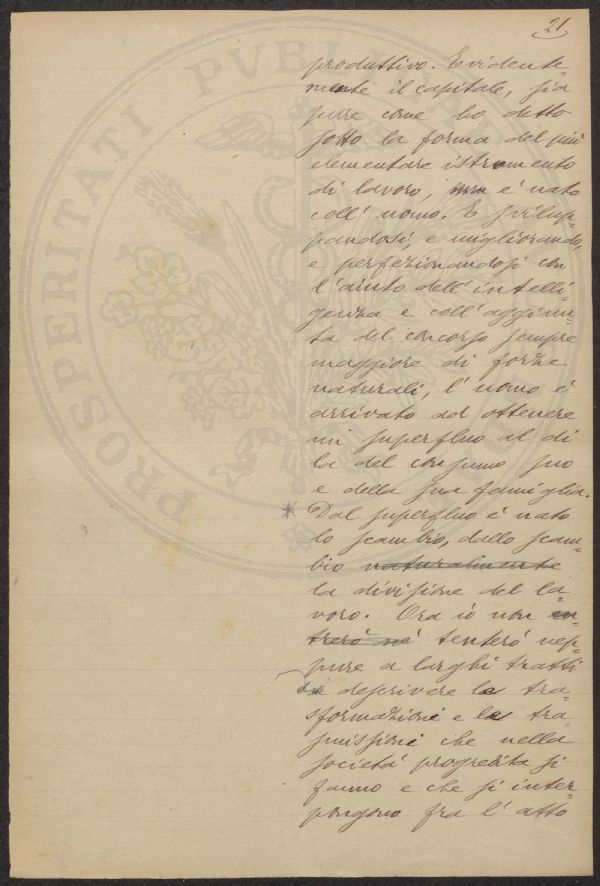 21
produttivo. Evidente=
mente il capitale, sia
pure come ho detto
sotto la forma del più
elementare istrumento
di lavoro, è nato
coll' uomo. E svilup=
pandosi, e migliorando,
e perfezionandosi con
l'aiuto dell'intelli=
genza e coll'aggiun=
ta del concorso sempre
maggiore di forze
naturali, l'uomo è
arrivato ad ottenere
un superfluo al di
la del consumo suo
e della sua famiglia.
* Dal superfluo è nato
lo scambio, dallo scam=
bio naturalmente
la divisione del la=
voro. Ora io non en=
trerò nè tenterò nep=
pure a larghi tratti
di descrivere le tra=
sformazioni e le tra=
smissioni che nella
società progredita si
fanno e che si inter=
pongono fra l'atto
PROSPERITATI PUBLICAE